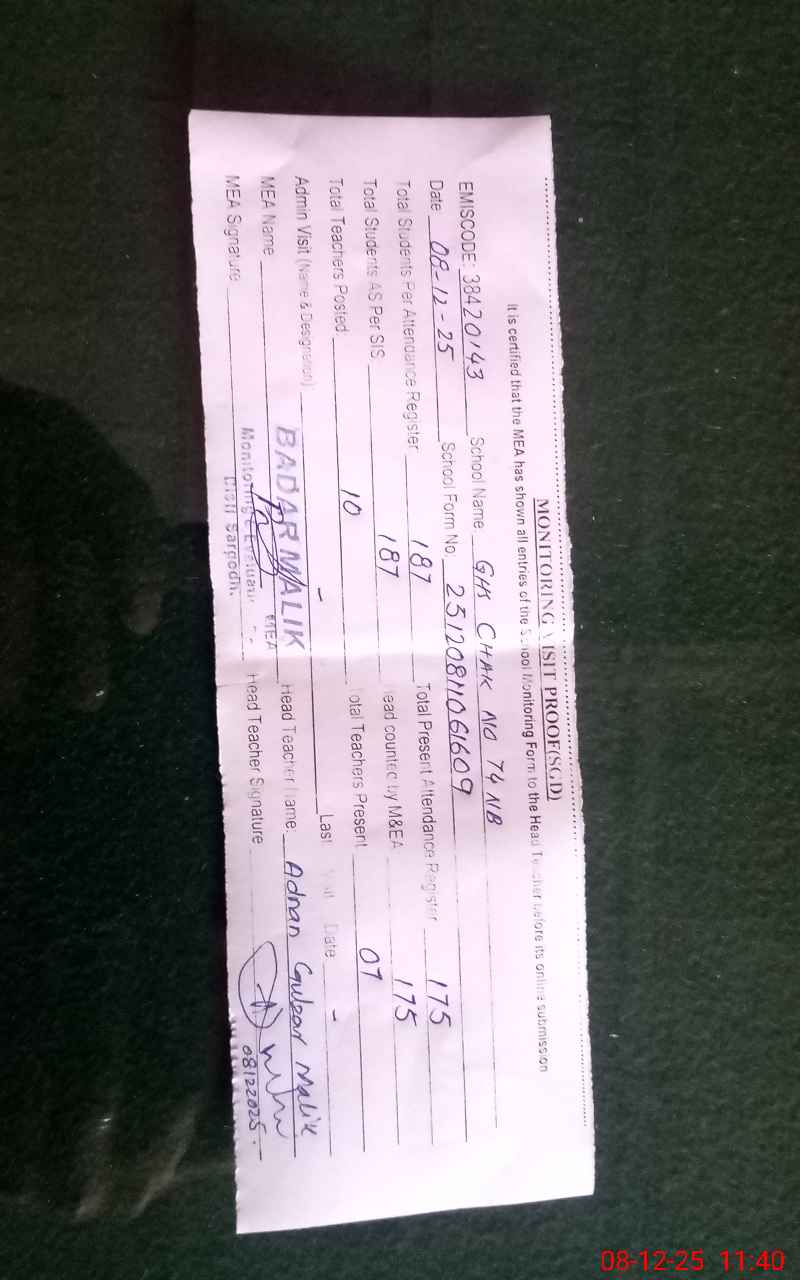 MONITORING VISIT PROOF(SGD)
It is certified that the MEA has shown all entries of the School Monitoring Form to the Head Teacher before its online submission
EMISCODE: 38420143 School Name GHS CHAK NO 74 NB
Date 08-12-25 School Form No. 25120811061609
Total Students Per Attendance Register 187 Total Present Attendance Register 175
Total Students AS Per SIS. 187 Head counted by M&EA 175
Total Teachers Posted. 10 Total Teachers Present 07
Admin Visit (Name & Designation) - Last Visit Date -
MEA Name BADAR MALIK MEA Head Teacher Name: Adnan Gulzar Malik
MEA Signature Monitoring & Evaluati Distt Sargodh. Head Teacher Signature 08122025.
08-12-25 11:40